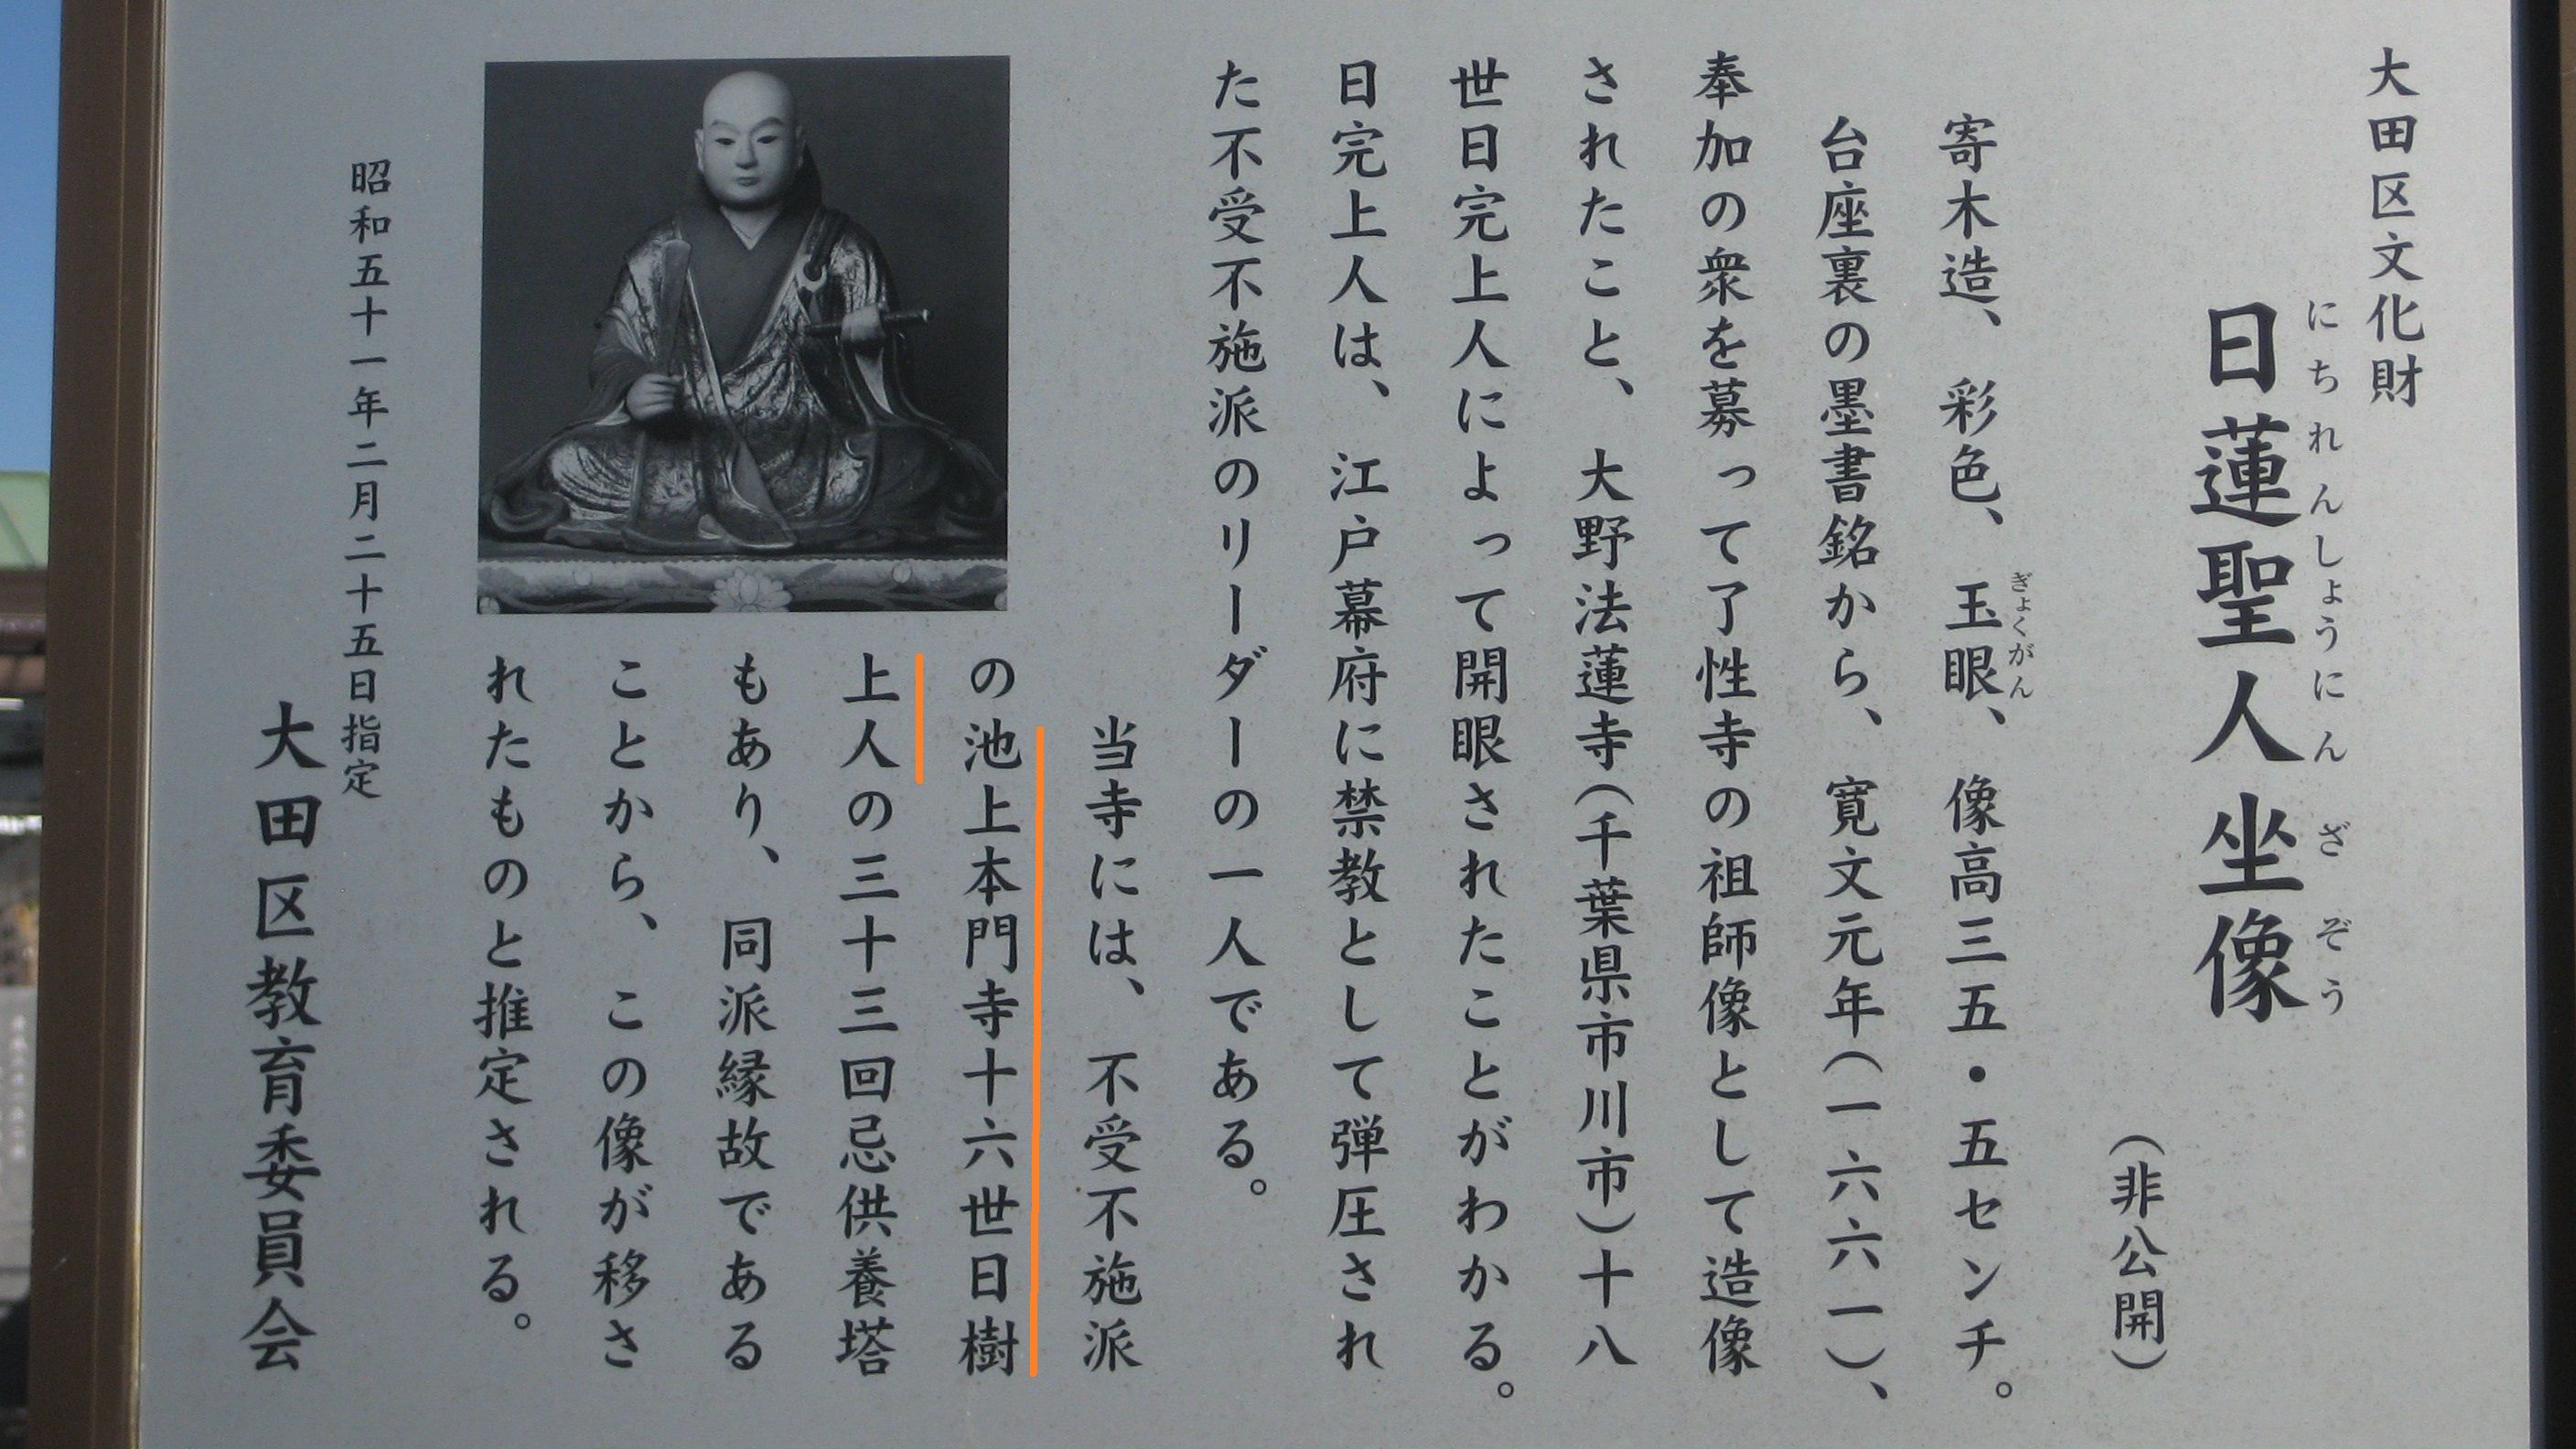 大田区文化財
日蓮聖人坐像
にちれんしょうにんざぞう
(非公開)
寄木造、彩色、玉眼、像高三五・五センチ。
ぎょくがん
台座裏の墨書銘から、寛文元年(一六六一)、
奉加の衆を募って了性寺の祖師像として造像
されたこと、大野法蓮寺(千葉県市川市)十八
世日完上人によって開眼されたことがわかる。
日完上人は、江戸幕府に禁教として弾圧され
た不受不施派のリーダーの一人である。
当寺には、不受不施派
の池上本門寺十六世日樹
上人の三十三回忌供養塔
もあり、同派縁故である
ことから、この像が移さ
れたものと推定される。
昭和五十一年二月二十五日指定
大田区教育委員会